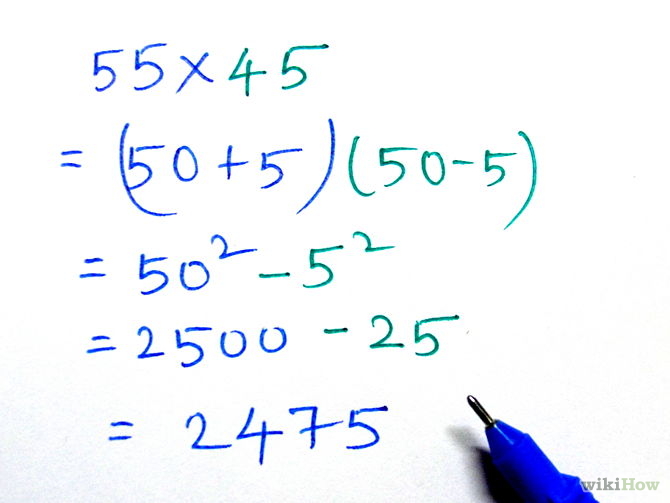 55×45
= (50+5)(50-5)
= 50² - 5²
= 2500 - 25
= 2475
wikiHow